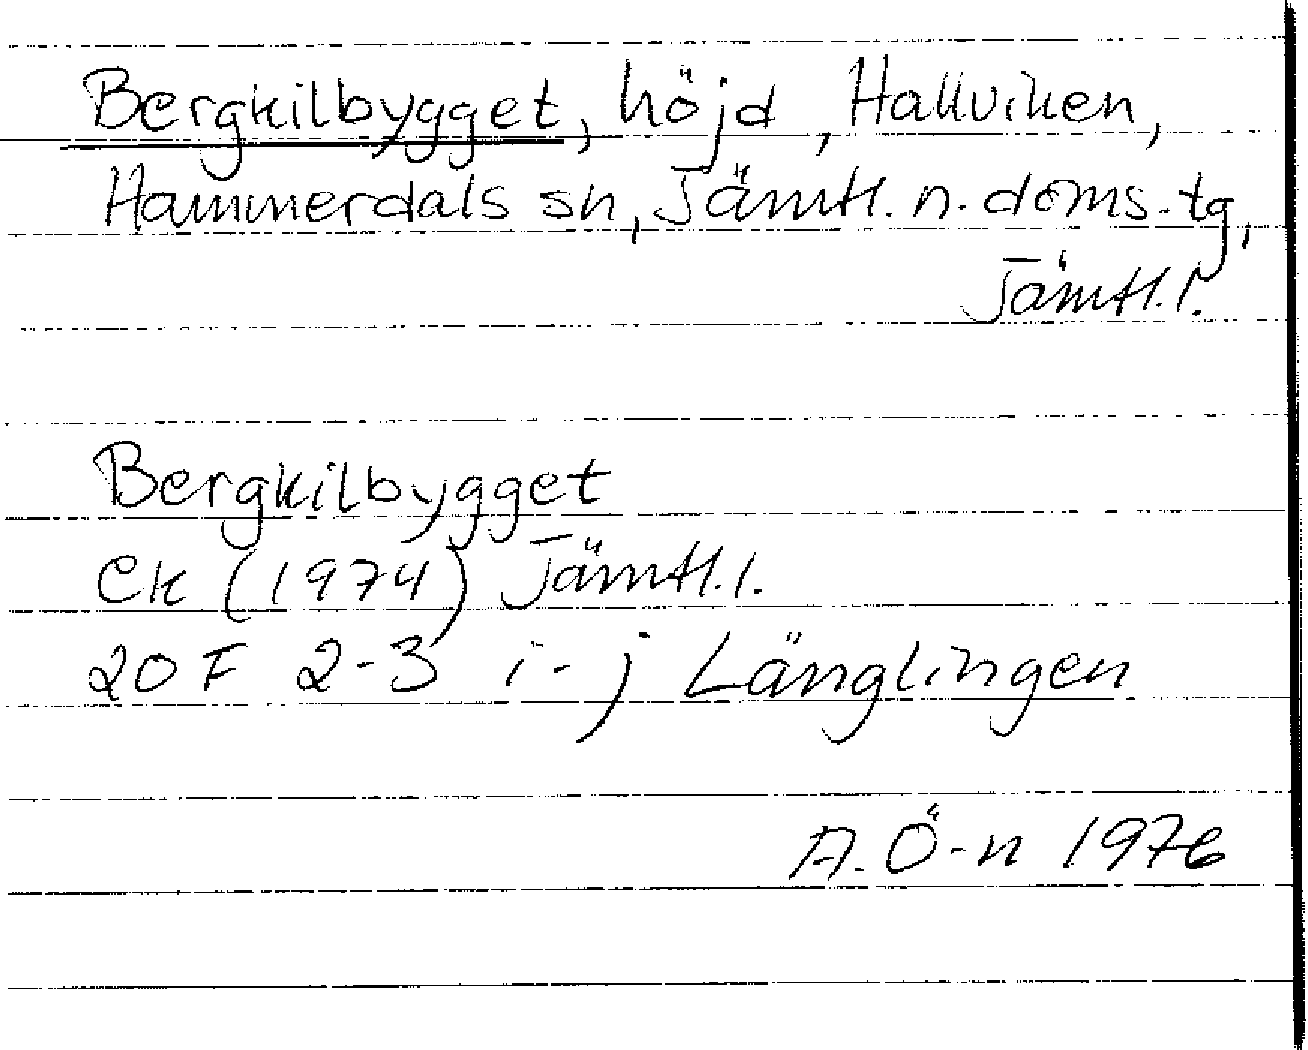 Bergkilbygget, höjd, Hallviken,
Hammerdals sn, Jämtl. n. doms. tg,
Jämtl. l.
Bergkilbygget
Ek (1974) Jämtl. l.
20 F 2-3 i-j Länglingen
A. Ö-n 1976